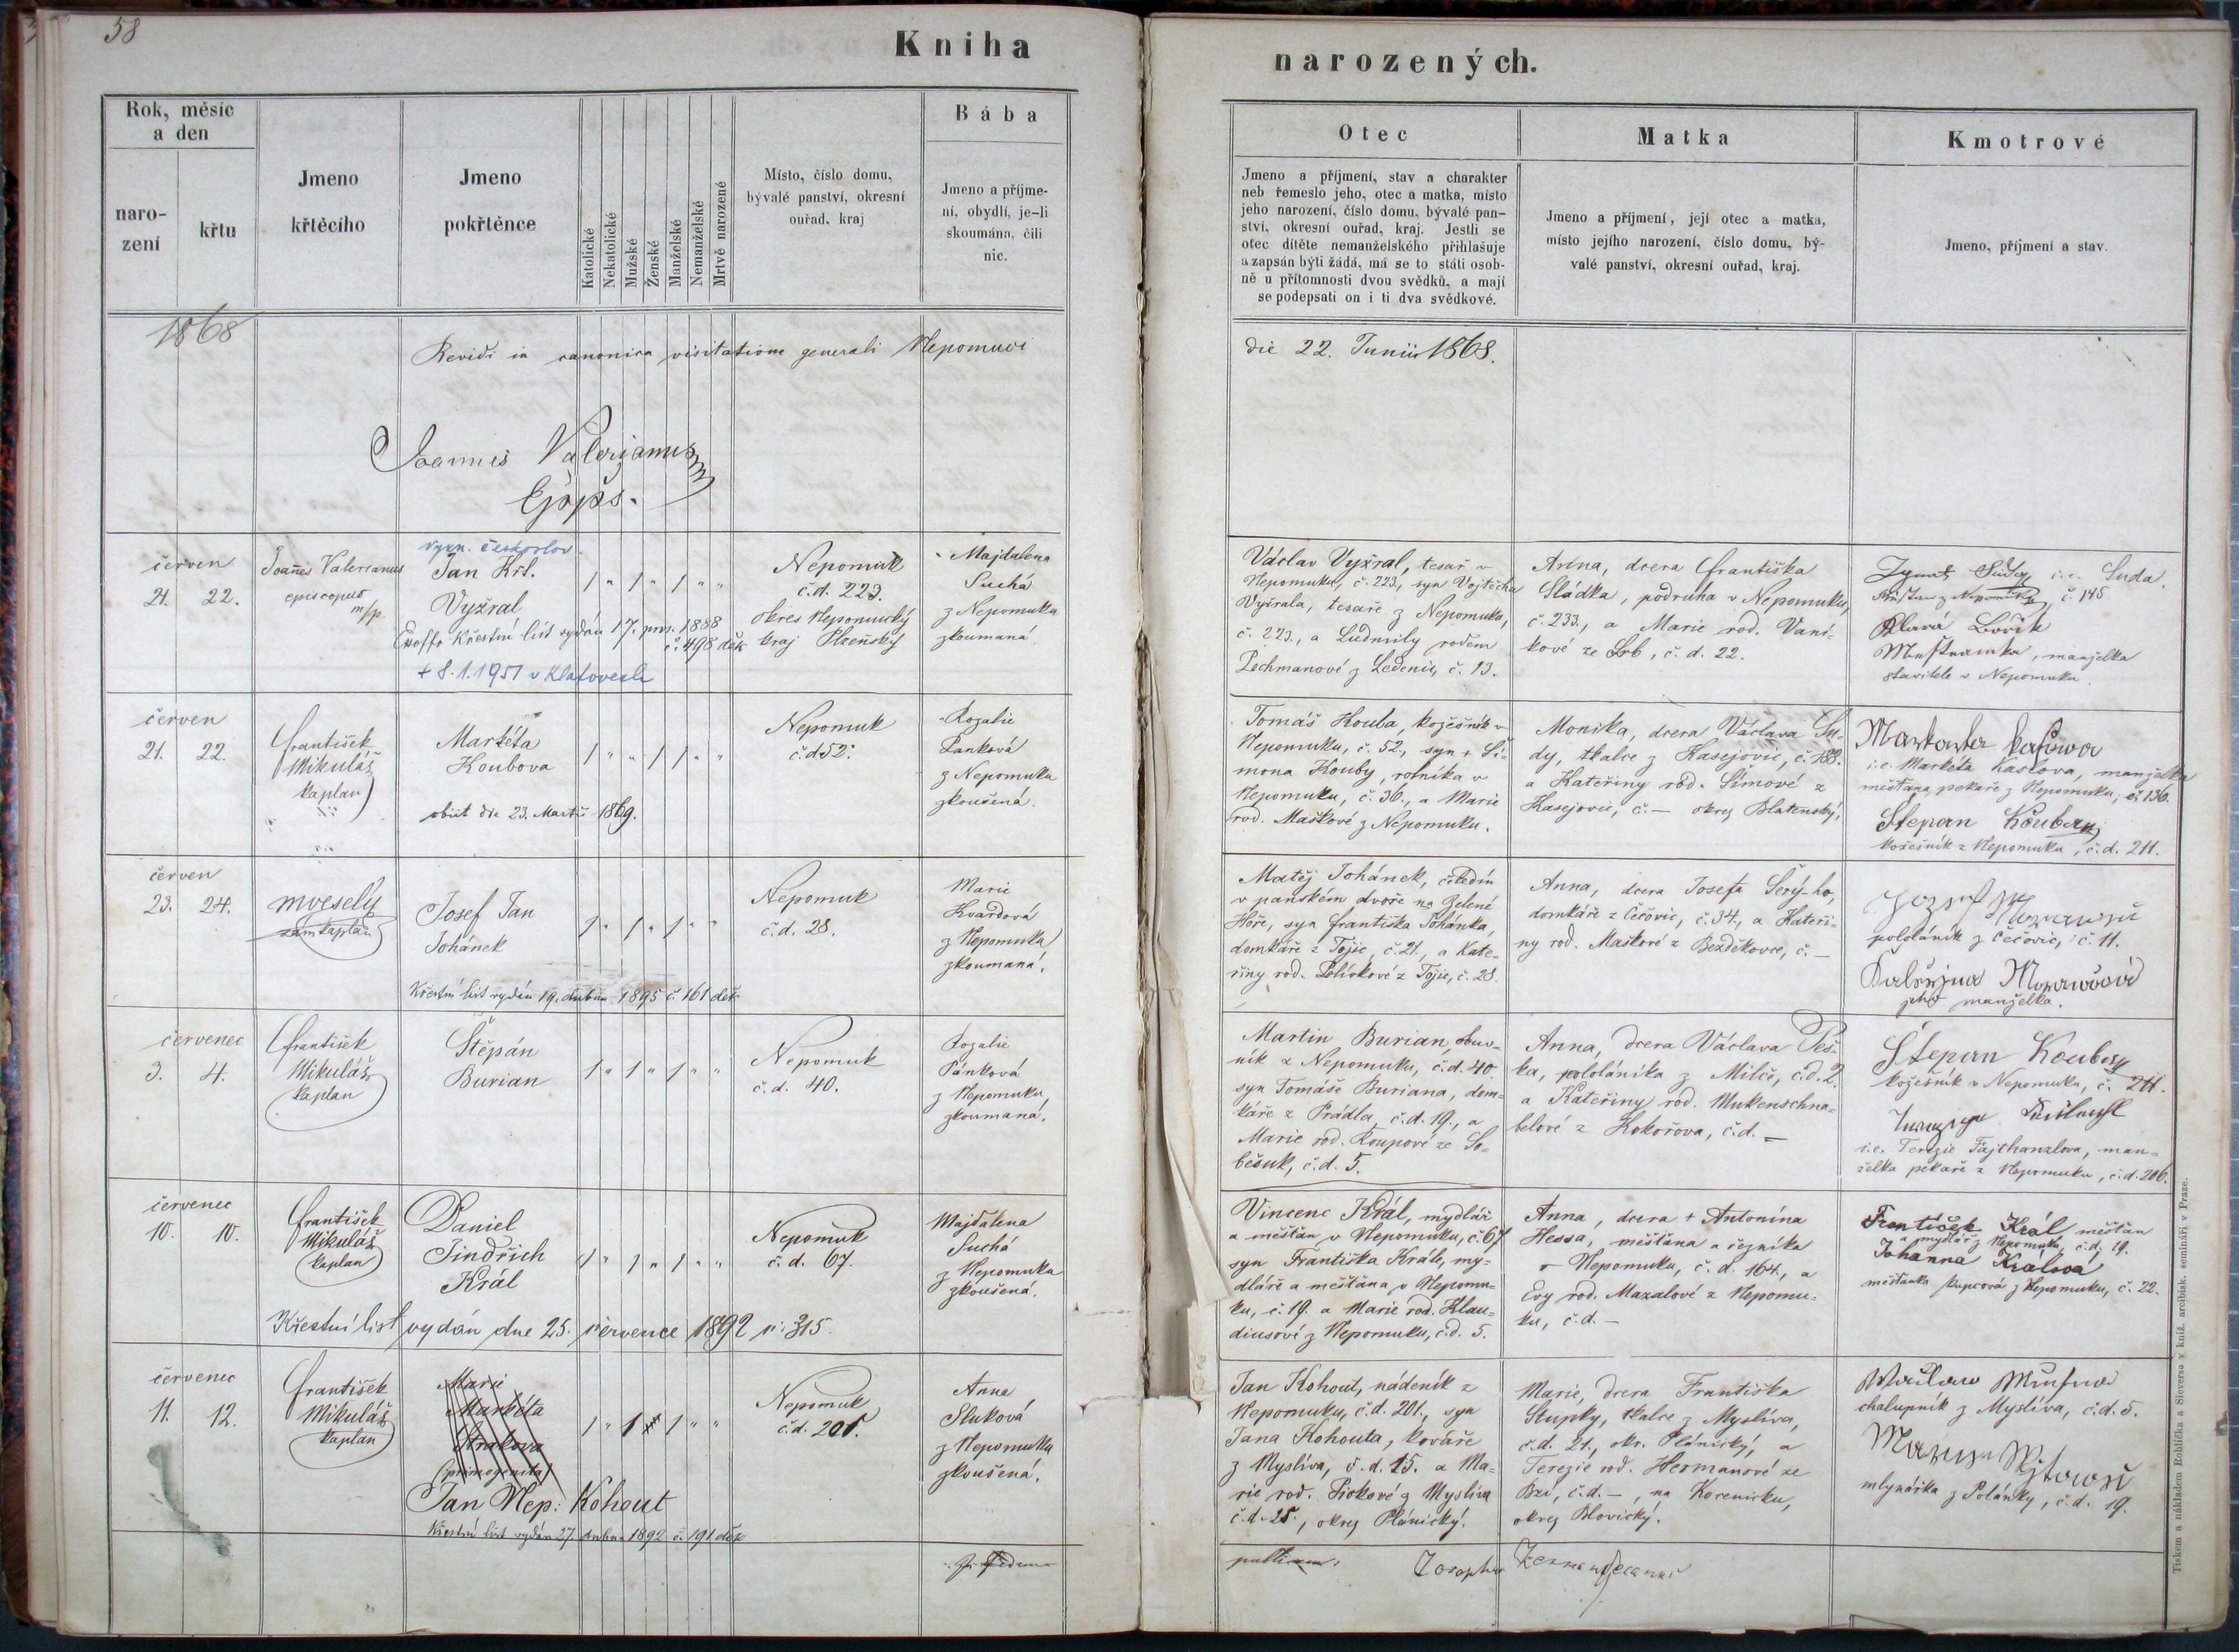 58
Kniha
narozených.
Rok, měsíc
a den
naro-
zení
křtu
Jmeno
křtěcího
Jmeno
pokřtěnce
Katolické
Nekatolické
Mužské
Ženské
Manželské
Nemanželské
Mrtvě narozené
Místo, číslo domu,
bývalé panství, okresní
ouřad, kraj
Bába
Jmeno a příjme-
ní, obydlí, je-li
skoumána, čili
nic.
Otec
Jmeno a příjmení, stav a charakter
neb řemeslo jeho, otec a matka, místo
jeho narození, číslo domu, bývalé pan-
ství, okresní ouřad, kraj. Jestli se
otec dítěte nemanželského přihlašuje
a zapsán býti žádá, má se to státi osob-
ně u přítomnosti dvou svědků, a mají
se podepsati on i ti dva svědkové.
Matka
Jmeno a příjmení, její otec a matka,
místo jejího narození, číslo domu, bý-
valé panství, okresní ouřad, kraj.
Kmotrové
Jmeno, příjmení a stav.
1868
Revidi in canonica visitatione generali Nepomuci
die 22. Junii 1868.
Joannes Valerianus
červen
21. 22.
Joañes Valerianus
episcopus
m/p.
vyzn. českoslov.
Jan Křt.
Vyžral
Exoffo Křestní list vydán 17. pros. 1888
č. 498 děk
+ 8.1.1951 v Klatovech
Nepomuk
č.d. 223.
okres Nepomucký
kraj Plzeňský
Majdalena
Suchá
z Nepomuka
zkoumaná.
Václav Vyžral, tesař v
Nepomuku, č. 223., syn Vojtěcha
Vyžrala, tesaře z Nepomuka,
č. 223., a Ludmily rodem
Pechmanové z Ledenic, č. 13.
Anna, dcera Františka
Sládka, podruha v Nepomuku,
č. 233., a Marie rod. Vaní-
kové ze Srb, č. d. 22.
i.e. Suda.
č. 145
manželka
stavitele v Nepomuku
červen
21. 22.
František
Mikuláš
kaplan
Markéta
Koubova
obiit die 23. Martii 1869.
Nepomuk
č.d. 52.
Rozalie
Panková
z Nepomuka
zkoušená.
Tomáš Kouba, kožešník v
Nepomuku, č. 52., syn + Ši-
mona Kouby, rolníka v
Nepomuku, č. 36., a Marie
rod. Maškové z Nepomuku.
Monika, dcera Václava Su-
dy, tkalce z Kasejovic, č. 188.
a Kateřiny rod. Šímové z
Kasejovic, č. — okres Blatenský.
i.e. Markéta Kaslova, manželka
měšťana pekaře z Nepomuku, č. 136.
Stepan Koubaj
kožešník z Nepomuku, č.d. 211.
červen
23. 24.
mveselý
zám. kaplan
Josef Jan
Johánek
Křestní list vydán 19. dubna 1895 č. 161 děk.
Nepomuk
č. d. 28.
Marie
Kvardová
z Nepomuka
zkoumaná.
Matěj Johánek, čeledín
v panském dvoře na Zelené
Hoře, syn Františka Johánka,
domkáře z Tojic, č. 21., a Kate-
řiny rod. Polívkové z Tojic, č. 28.
Anna, dcera Josefa Šerý-ho,
domkáře z Čečovic, č. 34., a Kateři-
ny rod. Maškové z Bezděkovce, č. —
pololáník z Čečovic, č. 11.
jeho manželka.
červenec
3. 4.
František
Mikuláš
kaplan
Štěpán
Burian
Nepomuk
č. d. 40.
Rozalie
Pánková
z Nepomuku,
zkoumaná.
Martin Burian, obuv-
ník z Nepomuku, č.d. 40.
syn Tomáše Buriana, dom-
káře z Prádla, č.d. 19., a
Marie rod. Koupové ze So-
běsuk, č.d. 5.
Anna, dcera Václava Peš-
ka, pololáníka z Milče, č.d. 2.
a Kateřiny rod. Mukenschna-
belové z Kokořova, č.d. —
Stepan Koubaj
kožešník v Nepomuku, č. 211.
i.e. Terezie Fajthanzlova, man-
želka pekaře z Nepomuku, č.d. 206.
červenec
10. 10.
František
Mikuláš
kaplan
Daniel
Jindřich
Král
Křestní list vydán dne 25. července 1892 č: 315.
Nepomuk
č. d. 67.
Majdalena
Suchá
z Nepomuka
zkoušená.
Vincenc Král, mydlář
a měšťan v Nepomuku, č. 67
syn Františka Krále, my-
dláře a měšťana v Nepomu-
ku, č. 19. a Marie rod. Klau-
diusové z Nepomuku, č.d. 5.
Anna, dcera + Antonína
Hessa, měšťana a řezníka
v Nepomuku, č. d. 164., a
Evy rod. Mazalové z Nepomu-
ku, č.d. —
František Král měšťan
a mydlář z Nepomuku, č.d. 19.
Johanna Králová
měšťanka kupcová z Nepomuku, č. 22.
červenec
11. 12.
František
Mikuláš
kaplan
Marie
Markéta
Strakova
(primogenita)
Jan Nep. Kohout
Křestní list vydán 27. dubna 1892 č. 191 děk
Nepomuk
č.d. 201.
Anna
Sluková
z Nepomuka
zkoušená.
Jan Kohout, nádeník z
Nepomuku, č.d. 201., syn
Jana Kohouta, kováře
z Myslíva, č.d. 15. a Ma-
rie rod. Pickové z Myslíva
č.d. 25., okres Plánický.
Marie, dcera Františka
Stupky, tkalce z Myslíva,
č.d. 21., okr. Plánický, a
Terezie rod. Hermanové ze
Bzí, č.d. —, na Kocenicku,
okres Blovický.
chalupník z Myslíva, č.d. 5.
mlynářka z Polánky, č.d. 19.
Tiskem a nákladem Rohlíčka a Sieverse v kníž. arcibisk. semináři v Praze.